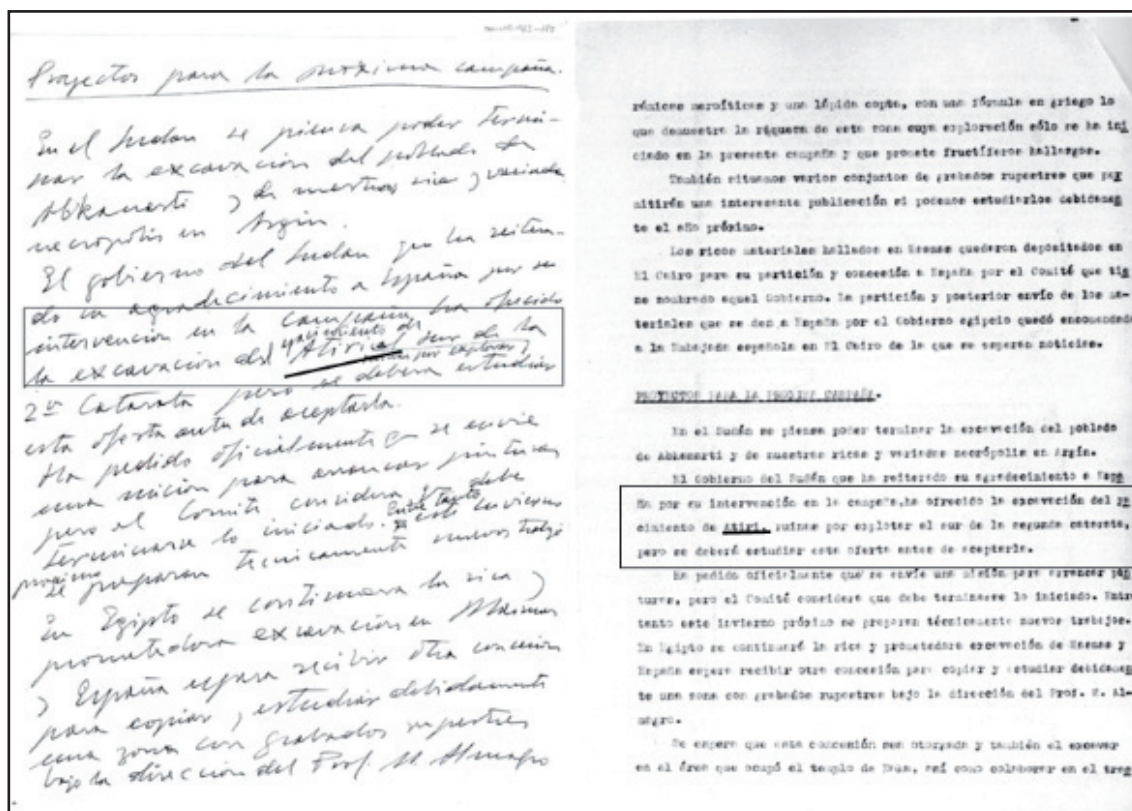 Proyectos para la próxima campaña.
En el Sudan se piensa poder termi-
nar la excavación del poblado de
Abkanarti y de nuestras rica y variada
necropolis en Argin.
El gobierno del Sudan que ha reitera-
do su agradecimiento a España por su
intervención en la campaña, ha ofrecido
la excavación del yacimiento de Atiri al sur de la
ruinas por explorar
2ª Catarata pero se debera estudiar
esta oferta antes de aceptarla.
Ha pedido oficialmente q se envie
una mision para arrancar pinturas
pero el Comite considera q debe
terminarse lo iniciado. Entre tanto este invierno
proximo se preparan tecnicamente nuevos trabajos
En Egipto se continuara la rica y
prometedora excavación en Masmas
y España espera recibir otra concesion
para copiar y estudiar debidamente
una zona con grabados rupestres
bajo la dirección del Prof. M. Almagro
rámicos meroíticos y una lápida copta, con una fórmula en griego lo
que demuestra la riqueza de esta zona cuya exploración sólo se ha ini
ciado en la presente campaña y que promete fructíferos hallazgos.
También situamos varios conjuntos de grabados rupestres que per
mitirán una interesante publicación si podemos estudiarlos debidamen
te el año próximo.
Los ricos materiales hallados en Masmas quedaron depositados en
El Cairo para su partición y concesión a España por el Comité que tie
ne nombrado aquel Gobierno. La partición y posterior envío de los ma-
teriales que se den a España por el Gobierno egipcio quedó encomendada
a la Embajada española en El Cairo de la que se esperan noticias.
PROYECTOS PARA LA PROXIMA CAMPAÑA.
En el Sudán se piensa poder terminar la excavación del poblado
de Abkanarti y de nuestras ricas y variadas necrópolis en Argín.
El Gobierno del Sudán que ha reiterado su agradecimiento a Espa
ña por su intervención en la campaña, ha ofrecido la excavación del ya
cimiento de Atiri, ruinas por explotar al sur de la segunda catarata,
pero se deberá estudiar esta oferta antes de aceptarla.
Ha pedido oficialmente que se envíe una misión para arrancar pin
turas, pero el Comité considera que debe terminarse lo iniciado. Entre
tanto este invierno próximo se preparan técnicamente nuevos trabajos.
En Egipto se continuará la rica y prometedora excavación de Masmas y
España espera recibir otra concesión para copiar y estudiar debidamen
te una zona con grabados rupestres bajo la dirección del Prof. M. Al-
magro.
Se espera que esta concesión sea otorgada y también el excavar
en el área que ocupó el templo de así como colaborar en el tras